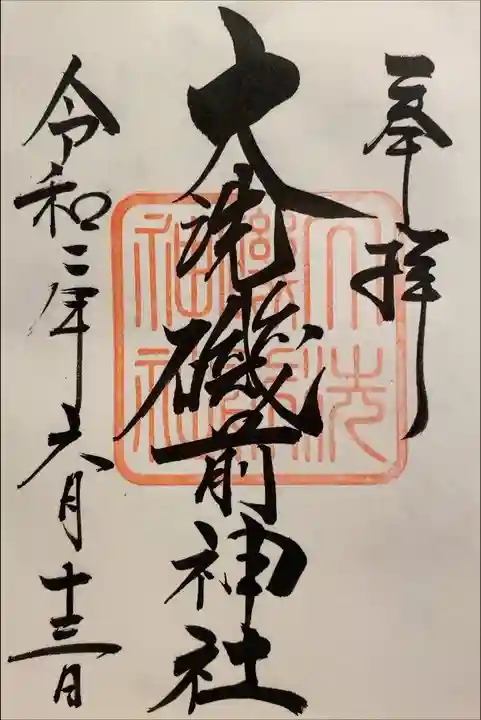 奉拝
大洗磯前神社
令和三年六月十三日
大洗
磯前
神社